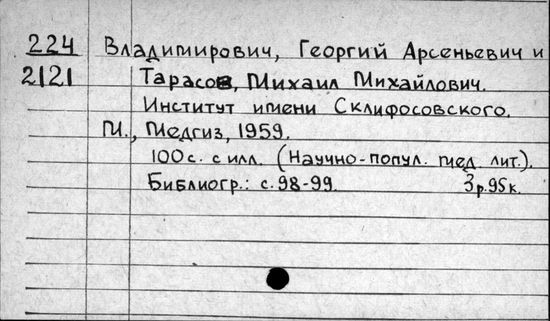 224 Владимирович, Георгий Арсеньевич и
2121 Тарасов, Михаил Михайлович.
Институт имени Склифосовского.
М., Медгиз, 1959.
100 с. с илл. (Научно-попул. мед. лит.).
Библиогр.: с. 98-99. 3 р. 95 к.